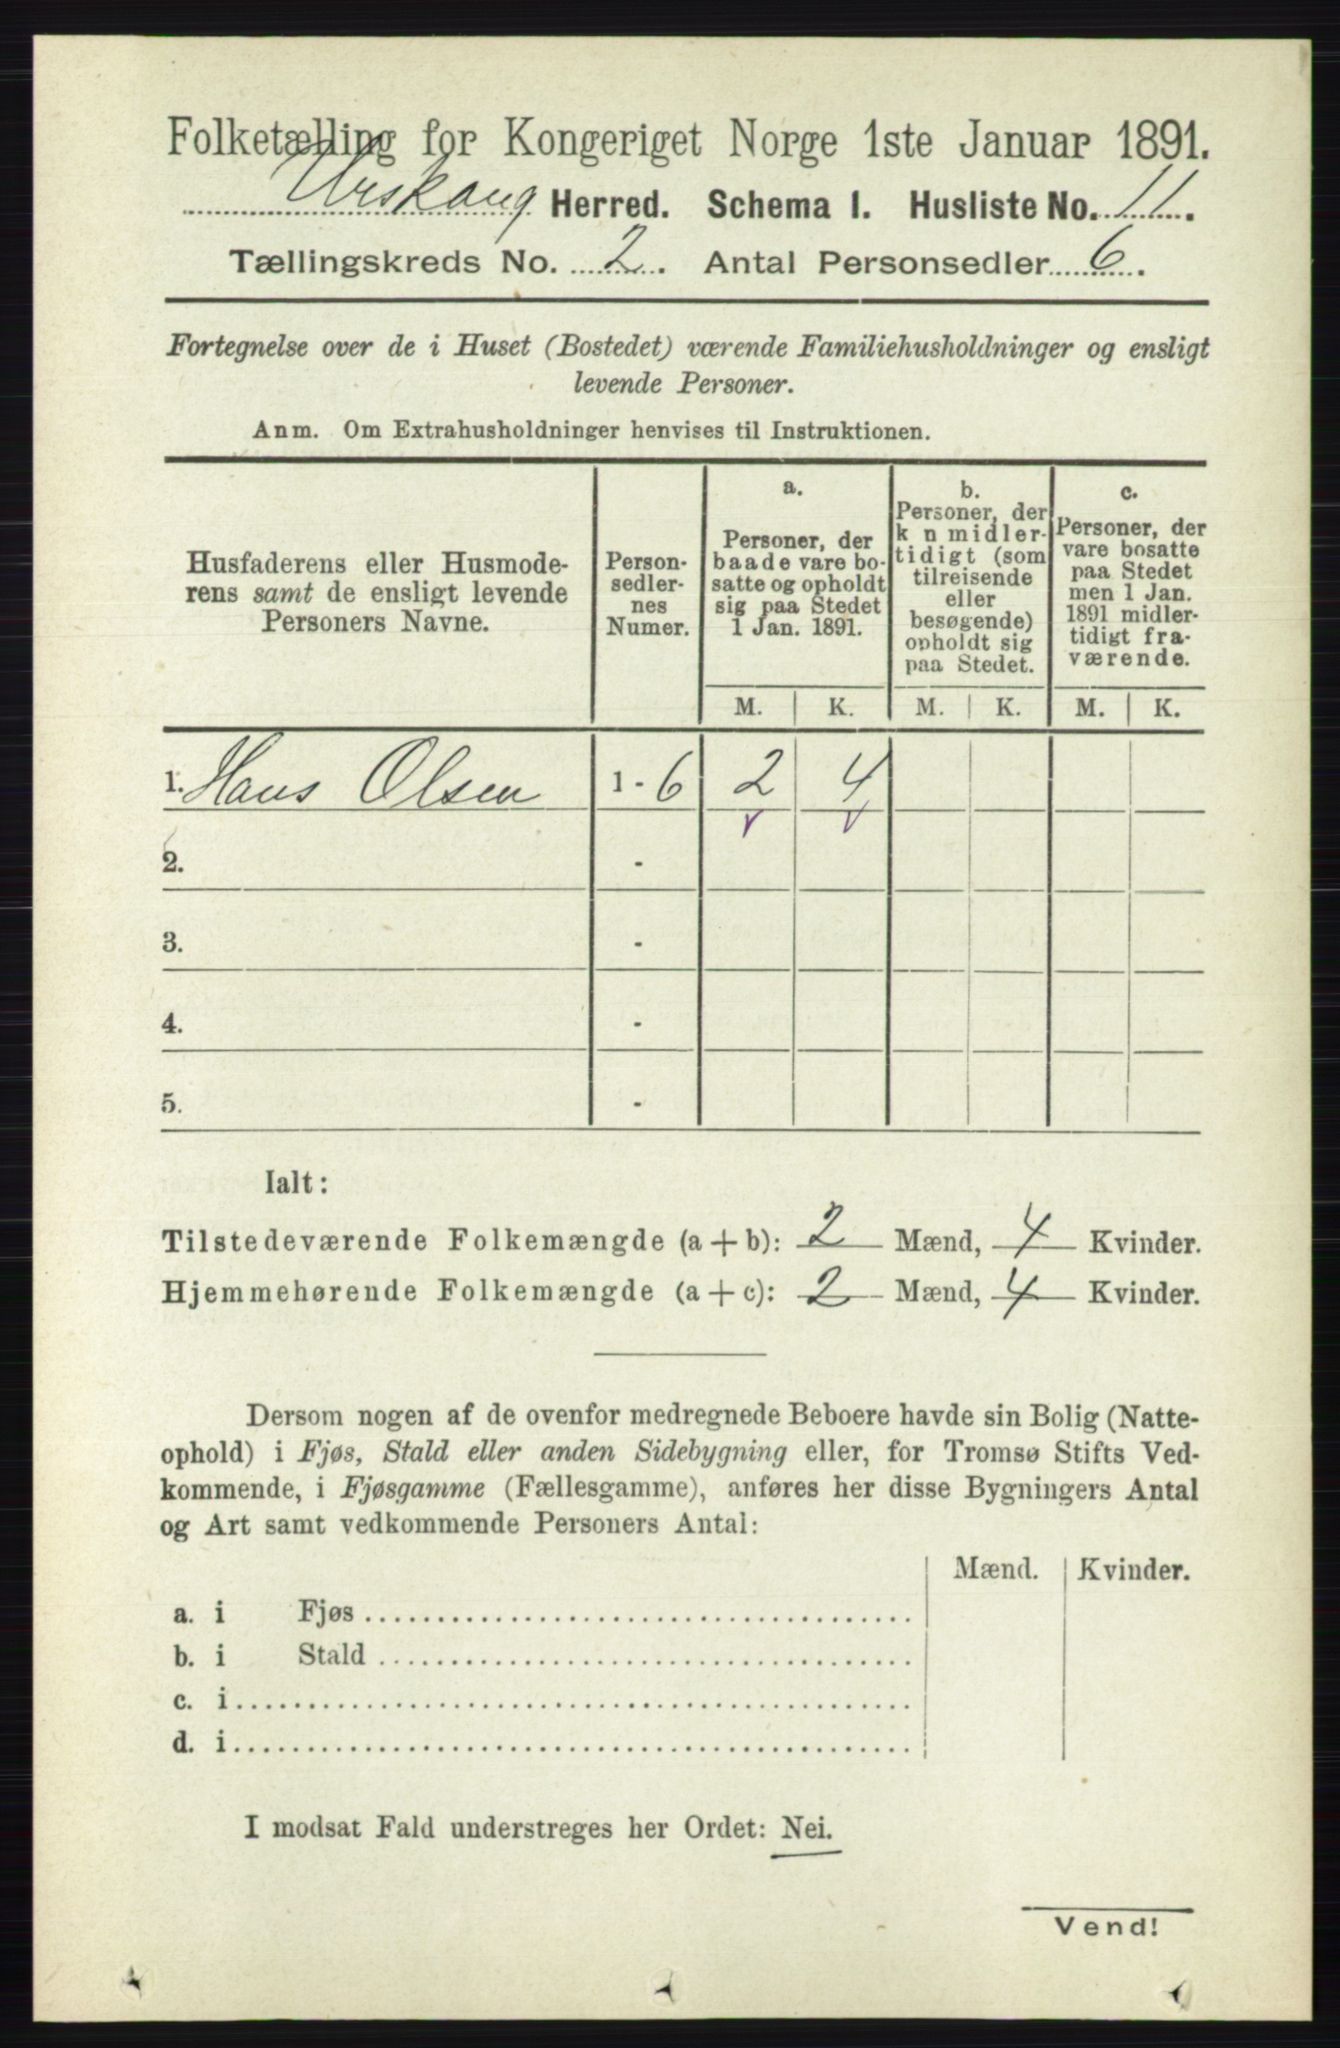 Folketælling for Kongeriget Norge 1ste Januar 1891.
Urskoug Herred. Schema 1. Husliste No. 11.
Tællingskreds No. 2. Antal Personsedler 6.
Fortegnelse over de i Huset (Bostedet) værende Familiehusholdninger og ensligt
levende Personer.
Anm. Om Extrahusholdninger henvises til Instruktionen.
Husfaderens eller Husmode-
rens samt de ensligt levende
Personers Navne.
Person-
sedler-
nes
Numer.
a.
Personer, der
baade vare bo-
satte og opholdt
sig paa Stedet
1 Jan. 1891.
b.
Personer, der
k n midler-
tidigt (som
tilreisende
eller
besøgende)
opholdt sig
paa Stedet.
c.
Personer, der
vare bosatte
paa Stedet
men 1 Jan.
1891 midler-
tidigt fra-
værende.
M. K. M. K. M. K.
1. Hans Olsen 1 - 6 2 4
v v
2. -
3. -
4. -
5. -
Ialt:
Tilstedeværende Folkemængde (a + b): 2 Mænd, 4 Kvinder.
Hjemmehørende Folkemængde (a + c): 2 Mænd, 4 Kvinder.
Dersom nogen af de ovenfor medregnede Beboere havde sin Bolig (Natte-
ophold) i Fjøs, Stald eller anden Sidebygning eller, for Tromsø Stifts Ved-
kommende, i Fjøsgamme (Fællesgamme), anføres her disse Bygningers Antal
og Art samt vedkommende Personers Antal:
Mænd. Kvinder.
a. i Fjøs
b. i Stald
c. i
d. i
I modsat Fald understreges her Ordet: Nei.
Vend!